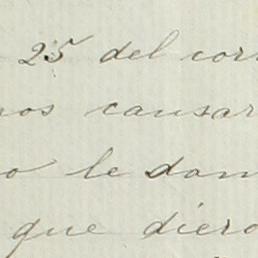 25 del corr
nos causar
o le dam
que diero